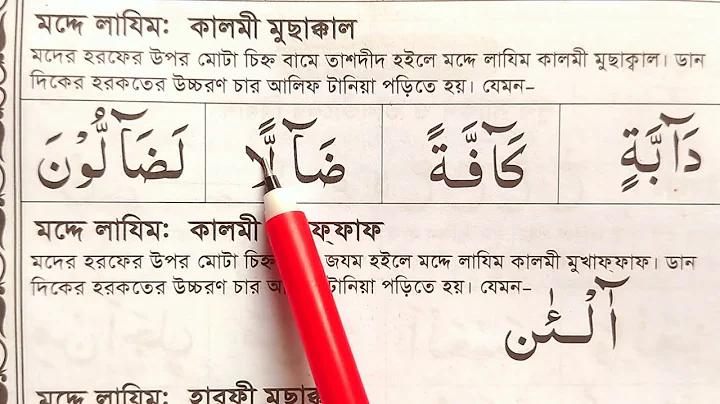 মদ্দে লাযিম: কালমী মুছাক্কাল
মদের হরফের উপর মোটা চিহ্ন বামে তাশদীদ হইলে মদ্দে লাযিম কালমী মুছাক্বাল। ডান
দিকের হরকতের উচ্চরণ চার আলিফ টানিয়া পড়িতে হয়। যেমন–
دَآبَّةٍ كَآفَّةً ضَآلًّا لَضَآلُّوْنَ
মদ্দে লাযিম: কালমী ফ্ফাফ
মদের হরফের উপর মোটা চিহ্ন জযম হইলে মদ্দে লাযিম কালমী মুখাফ্ফাফ। ডান
দিকের হরকতের উচ্চরণ চার টানিয়া পড়িতে হয়। যেমন–
آلْـٰٔنَ
মদ্দে লাযিম: হারফী